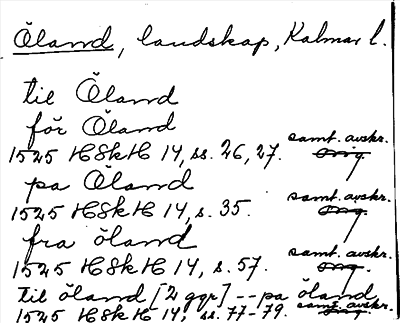 Öland, landskap, Kalmar l.
til Öland
för Öland
1525 HSkH 14, ss. 26, 27. samt. avskr. orig.
pa Öland
1525 HSkH 14, s. 35. samt. avskr. orig.
fra öland
1525 HSkH 14, s. 57. samt. avskr. orig.
til öland [2 ggr] -- pa öland
1525 HSkH 14, ss. 77-79. samt. avskr. orig.